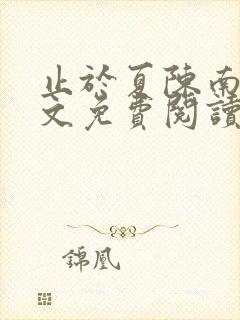 止於夏陳南
文免費閱讀
錦凰